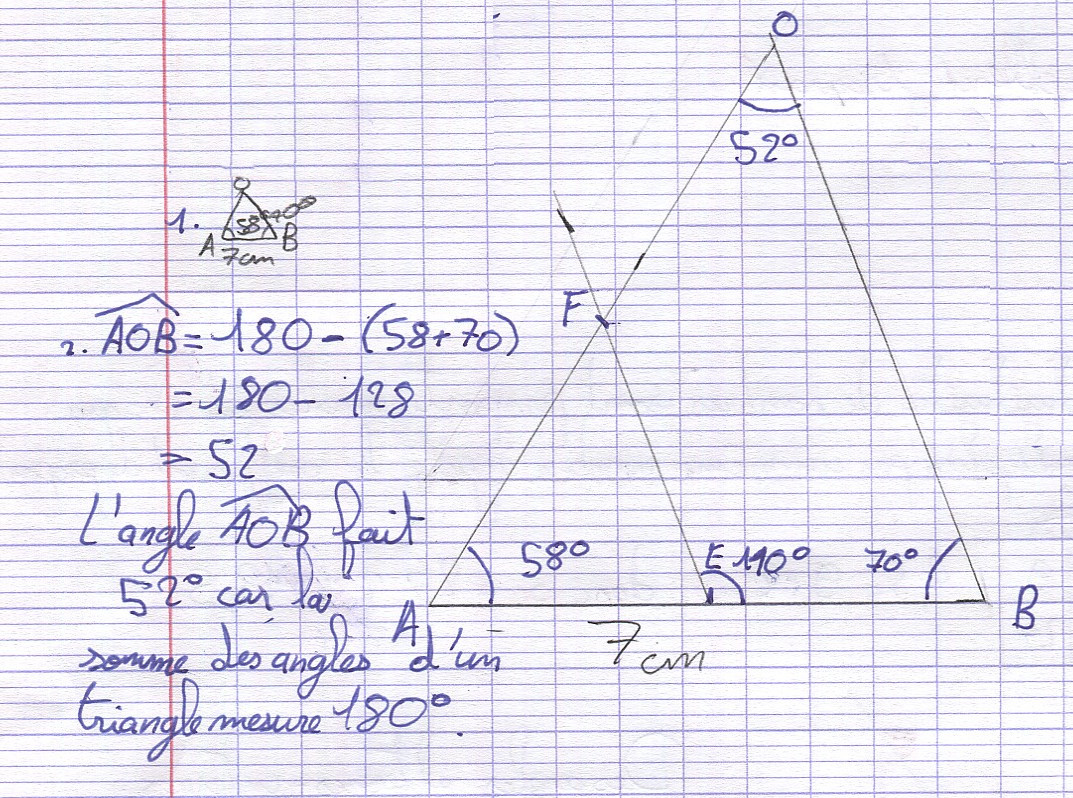 O
52°
1.
O
58° 70°
A B
7cm
F
2. AOB = 180 - (58+70)
= 180 - 128
= 52
L'angle AOB fait
52° car la
somme des angles d'un
triangle mesure 180°.
58° E 110° 70°
A B
7cm